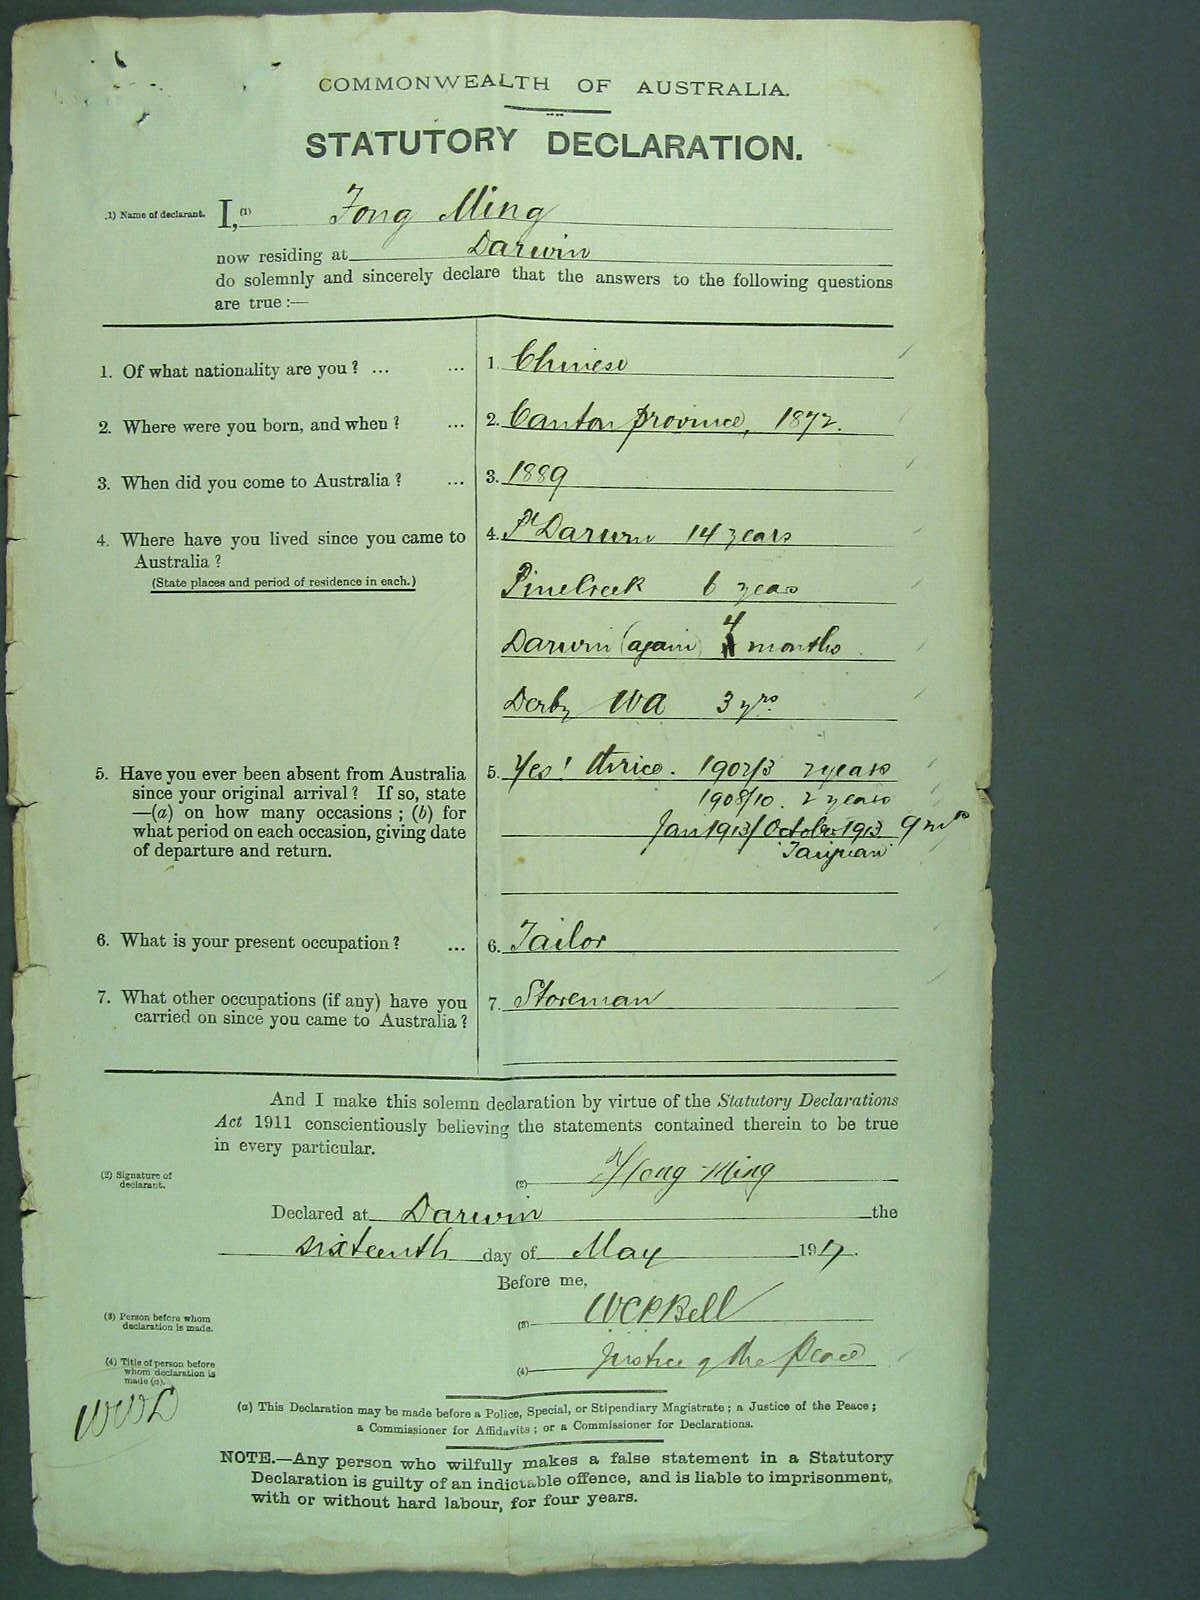 COMMONWEALTH OF AUSTRALIA.
STATUTORY DECLARATION.
(1) Name of declarant. I, (1) Fong Ming
now residing at Darwin
do solemnly and sincerely declare that the answers to the following questions
are true :—
1. Of what nationality are you ? ... ... 1. Chinese
2. Where were you born, and when ? ... 2. Canton province, 1872.
3. When did you come to Australia ? ... 3. 1889
4. Where have you lived since you came to 4. Pt Darwin 14 years
Australia ?
(State places and period of residence in each.) Pine Creek 6 years
Darwin (again) 4 months
Derby WA 3 yrs
5. Have you ever been absent from Australia 5. Yes! thrice. 1902/3 2 years
since your original arrival ? If so, state 1908/10. 2 years
—(a) on how many occasions ; (b) for
what period on each occasion, giving date Jan 1913/October 1913 9 mos
of departure and return. 'Taiyuan'
6. What is your present occupation ? ... 6. Tailor
7. What other occupations (if any) have you 7. Storeman
carried on since you came to Australia ?
And I make this solemn declaration by virtue of the Statutory Declarations
Act 1911 conscientiously believing the statements contained therein to be true
in every particular.
(2) Signature of
declarant. (2) Fong Ming
Declared at Darwin the
sixteenth day of May 1917.
Before me,
(3) Person before whom
declaration is made. (3) WCPBell
(4) Title of person before
whom declaration is
made (a). (4) Justice of the Peace
(a) This Declaration may be made before a Police, Special, or Stipendiary Magistrate ; a Justice of the Peace ;
a Commissioner for Affidavits ; or a Commissioner for Declarations.
NOTE.—Any person who wilfully makes a false statement in a Statutory
Declaration is guilty of an indictable offence, and is liable to imprisonment,
with or without hard labour, for four years.